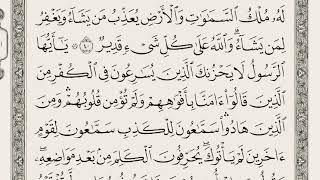 لَهُۥ مُلْكُ ٱلسَّمَٰوَٰتِ وَٱلْأَرْضِ يُعَذِّبُ مَن يَشَآءُ وَيَغْفِرُ
لِمَن يَشَآءُ ۗ وَٱللَّهُ عَلَىٰ كُلِّ شَىْءٍ قَدِيرٌ ۝٤٠ ۞ يَٰٓأَيُّهَا
ٱلرَّسُولُ لَا يَحْزُنكَ ٱلَّذِينَ يُسَٰرِعُونَ فِى ٱلْكُفْرِ مِنَ
ٱلَّذِينَ قَالُوٓا۟ ءَامَنَّا بِأَفْوَٰهِهِمْ وَلَمْ تُؤْمِن قُلُوبُهُمْ ۛ وَمِنَ
ٱلَّذِينَ هَادُوا۟ ۛ سَمَّٰعُونَ لِلْكَذِبِ سَمَّٰعُونَ لِقَوْمٍ
ءَاخَرِينَ لَمْ يَأْتُوكَ ۖ يُحَرِّفُونَ ٱلْكَلِمَ مِنۢ بَعْدِ مَوَاضِعِهِۦ ۖ